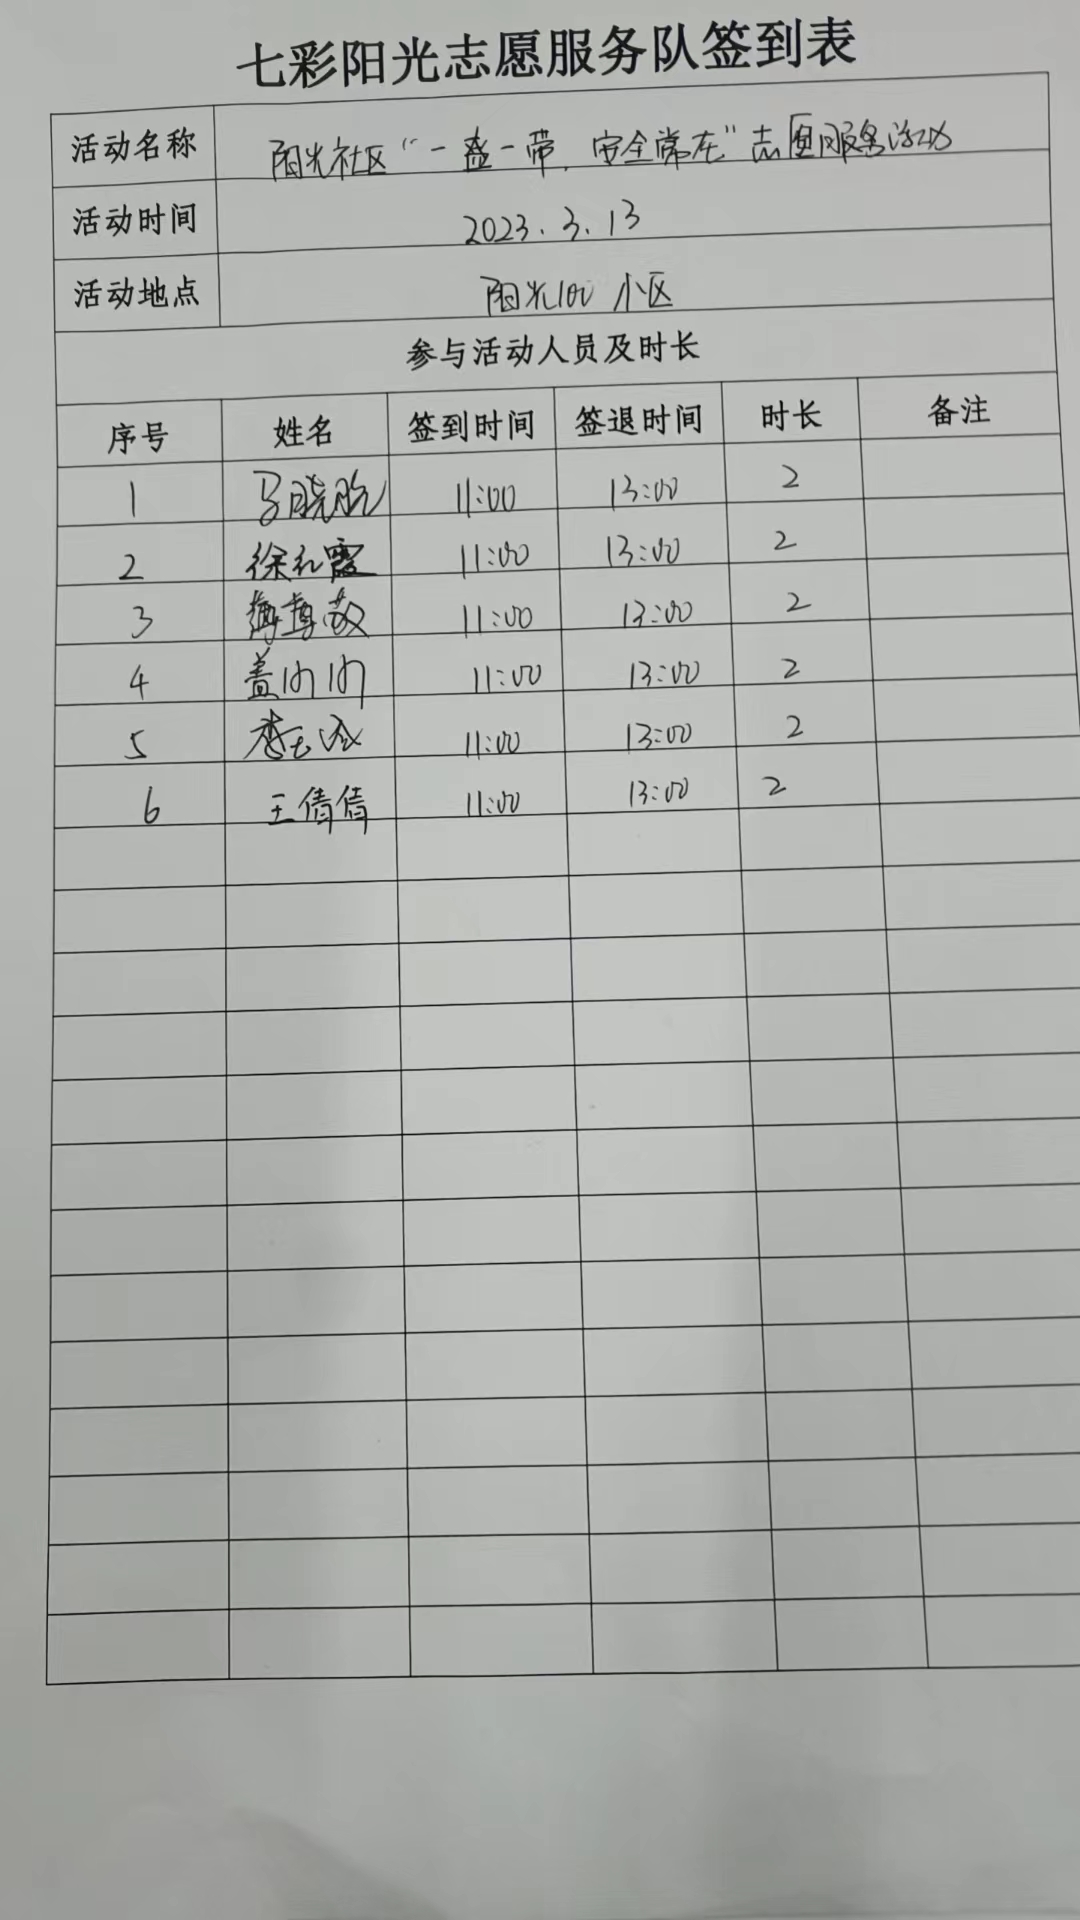 七彩阳光志愿服务队签到表
活动名称 阳光社区“一盔一带，安全常在”志愿服务活动
活动时间 2023.3.13
活动地点 阳光100小区
参与活动人员及时长
序号 姓名 签到时间 签退时间 时长 备注
1 马晓 11:00 13:00 2
2 徐礼霞 11:00 13:00 2
3 11:00 13:00 2
4 盖 11:00 13:00 2
5 李 11:00 13:00 2
6 王倩倩 11:00 13:00 2